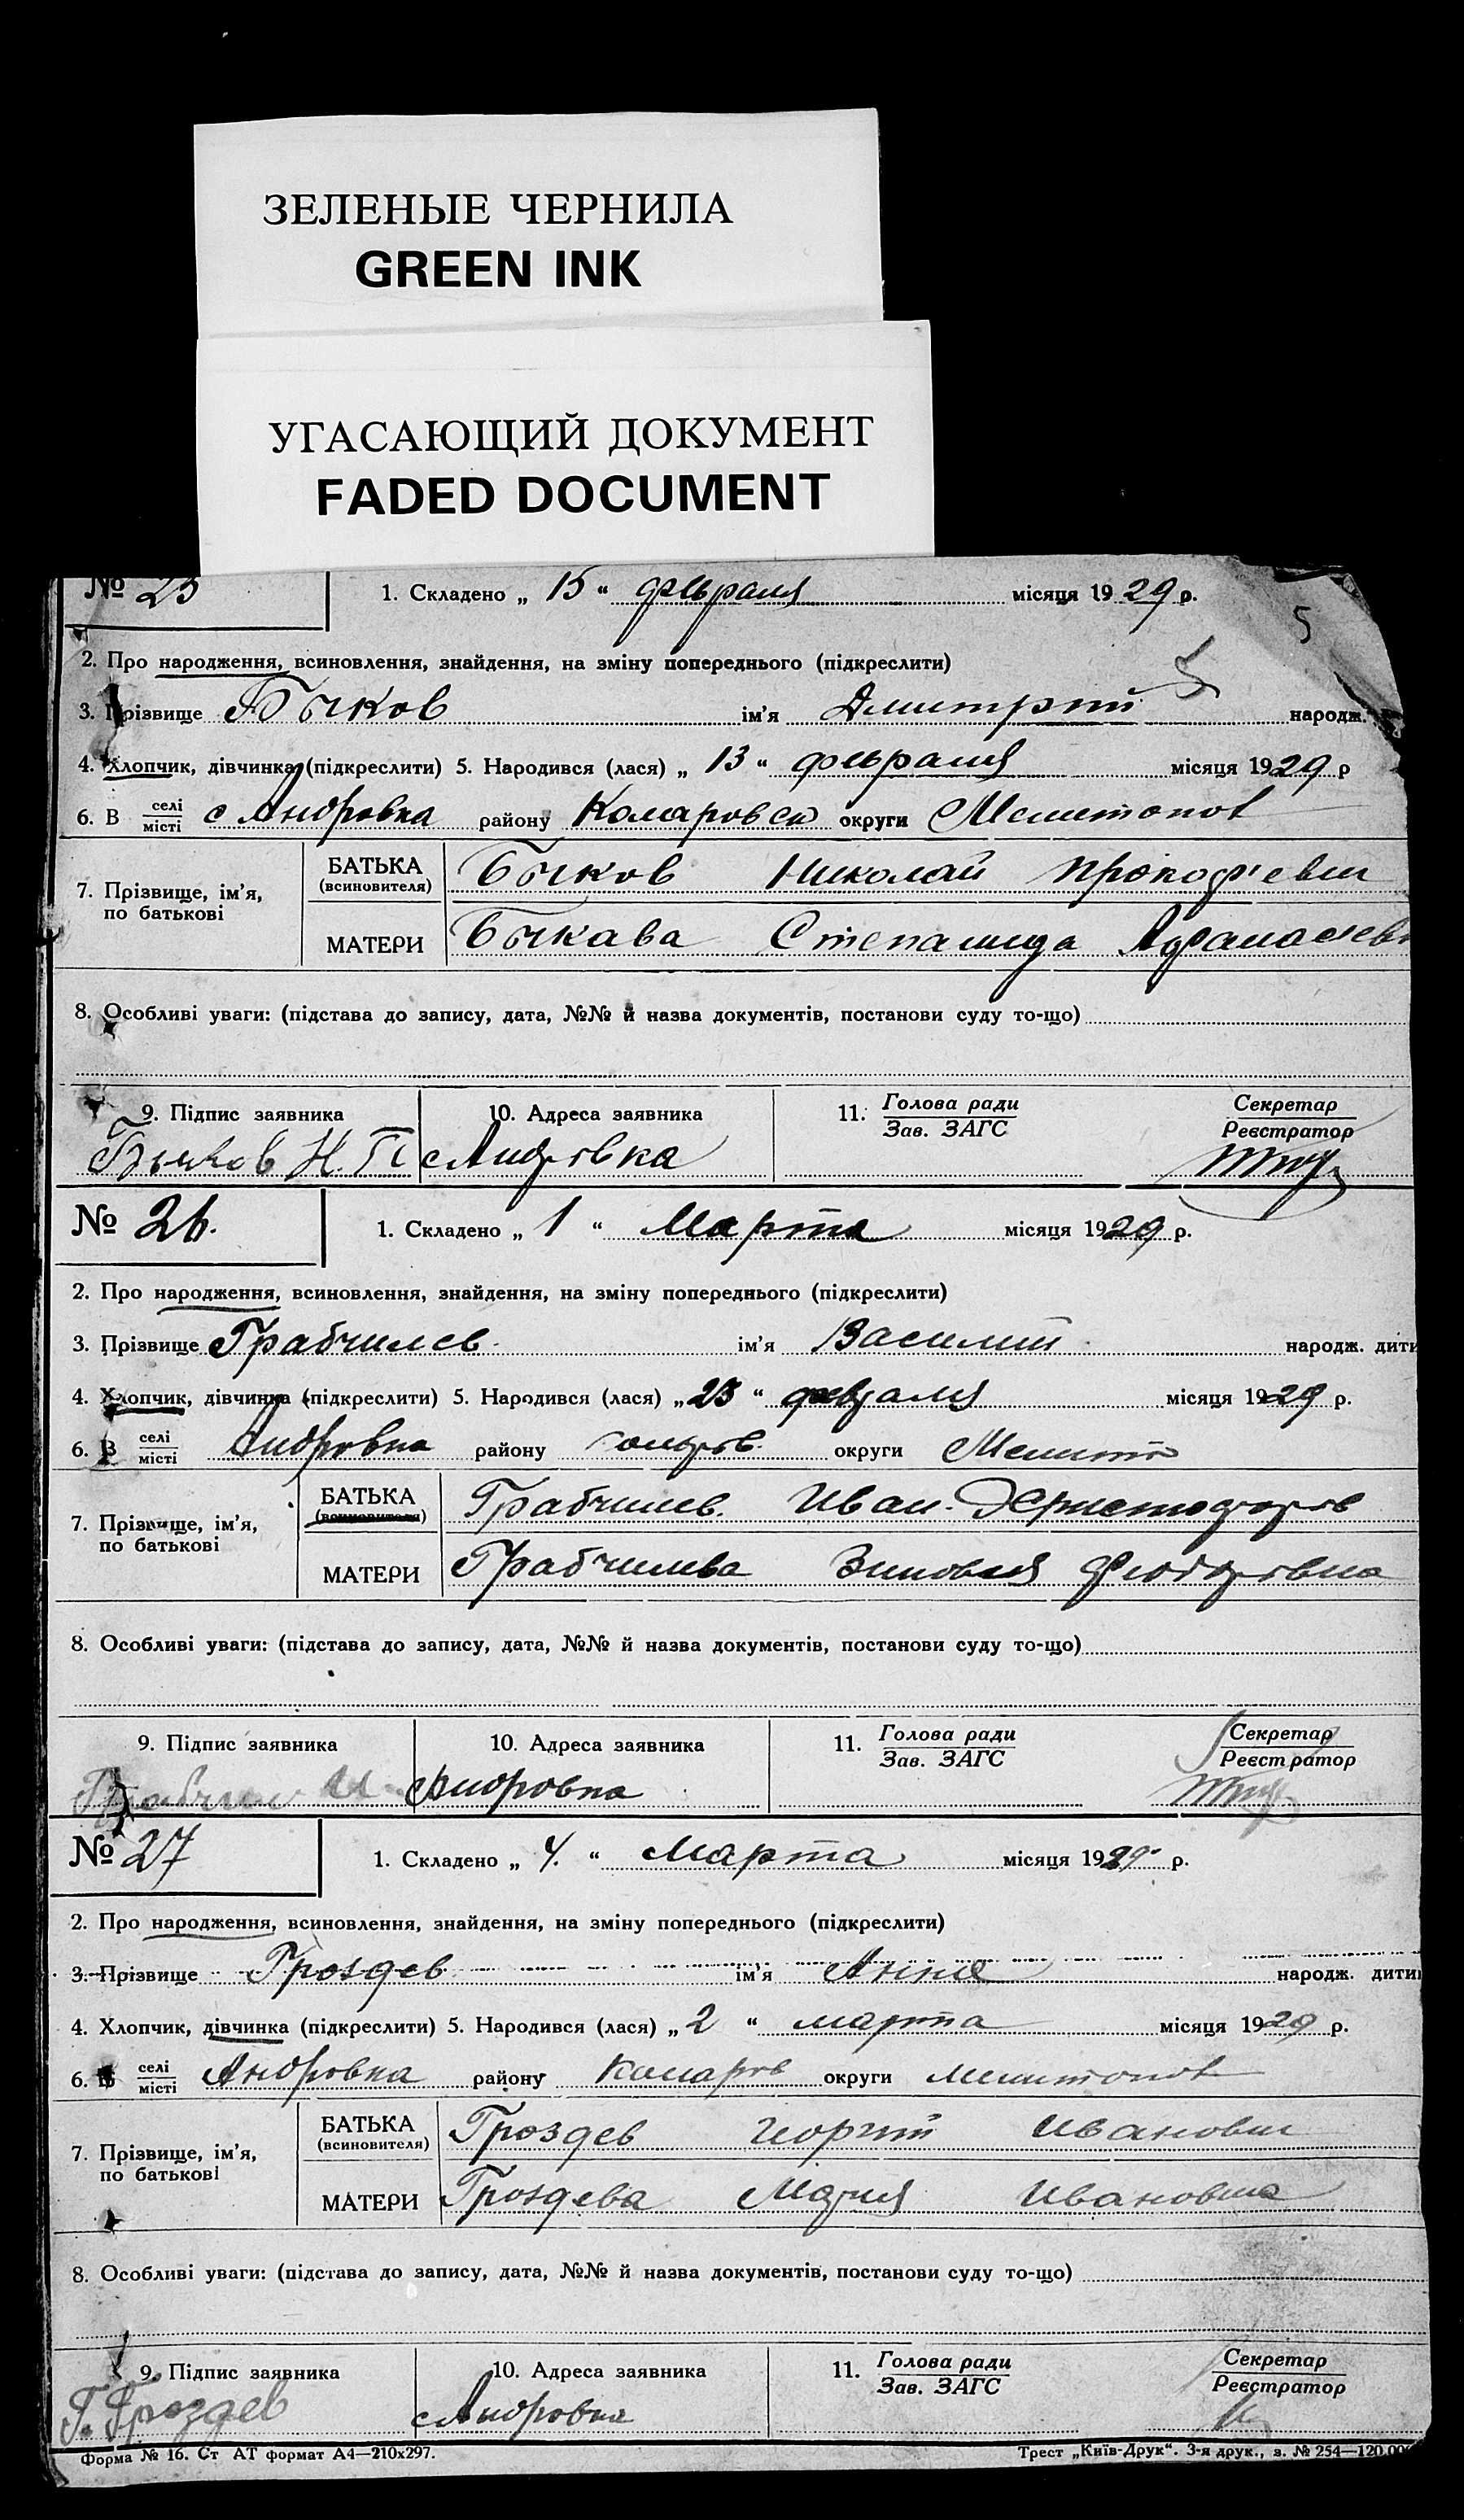 ЗЕЛЕНЫЕ ЧЕРНИЛА
GREEN INK
УГАСАЮЩИЙ ДОКУМЕНТ
FADED DOCUMENT
№ 25 1. Складено „ 15 “ февраля місяця 1929 р.
5
2. Про народження, всиновлення, знайдення, на зміну попереднього (підкреслити) 5
3. Прізвище Бычков ім'я Дмитрий народж.
4. Хлопчик, дівчинка (підкреслити) 5. Народився (лася) „ 13 “ февраля місяця 1929 р
6. В селі/місті с Андровка району Комаровск округи Мелитопол
7. Прізвище, ім'я, по батькові БАТЬКА (всиновителя) Бычков Николай Прокоф'евич
МАТЕРИ Бычкава Степанида Афанасиев
8. Особливі уваги: (підстава до запису, дата, №№ й назва документів, постанови суду то-що)
9. Підпис заявника 10. Адреса заявника 11. Голова ради/Зав. ЗАГС Секретар/Реєстратор
Бычков Н. П с Андровка
№ 26. 1. Складено „ 1 “ Марта місяця 1929 р.
2. Про народження, всиновлення, знайдення, на зміну попереднього (підкреслити)
3. Прізвище Грабчилев. ім'я Василий народж. дити
4. Хлопчик, дівчинка (підкреслити) 5. Народився (лася) „ 23 “ февраля місяця 1929 р.
6. В селі/місті Андровка району округи Мелито
7. Прізвище, ім'я, по батькові БАТЬКА (всиновителя) Грабчилев. Иван
МАТЕРИ Грабчилева Зиновия Фиодоровна
8. Особливі уваги: (підстава до запису, дата, №№ й назва документів, постанови суду то-що)
9. Підпис заявника 10. Адреса заявника 11. Голова ради/Зав. ЗАГС Секретар/Реєстратор
Андровка
№ 27 1. Складено „ 4. “ Марта місяця 1929 р.
2. Про народження, всиновлення, знайдення, на зміну попереднього (підкреслити)
3. Прізвище Гроздев ім'я Анна народж. дити
4. Хлопчик, дівчинка (підкреслити) 5. Народився (лася) „ 2 “ марта місяця 1929 р.
6. В селі/місті Андровка району Комаров округи Мелитопол
7. Прізвище, ім'я, по батькові БАТЬКА (всиновителя) Гроздев Георгий Иванович
МАТЕРИ Гроздева Мария Ивановна
8. Особливі уваги: (підстава до запису, дата, №№ й назва документів, постанови суду то-що)
9. Підпис заявника 10. Адреса заявника 11. Голова ради/Зав. ЗАГС Секретар/Реєстратор
Г. Гроздев с Андровка
Форма № 16. Ст АТ формат А4—210х297. Трест „Київ-Друк“. 3-я друк., з. № 254—120.00